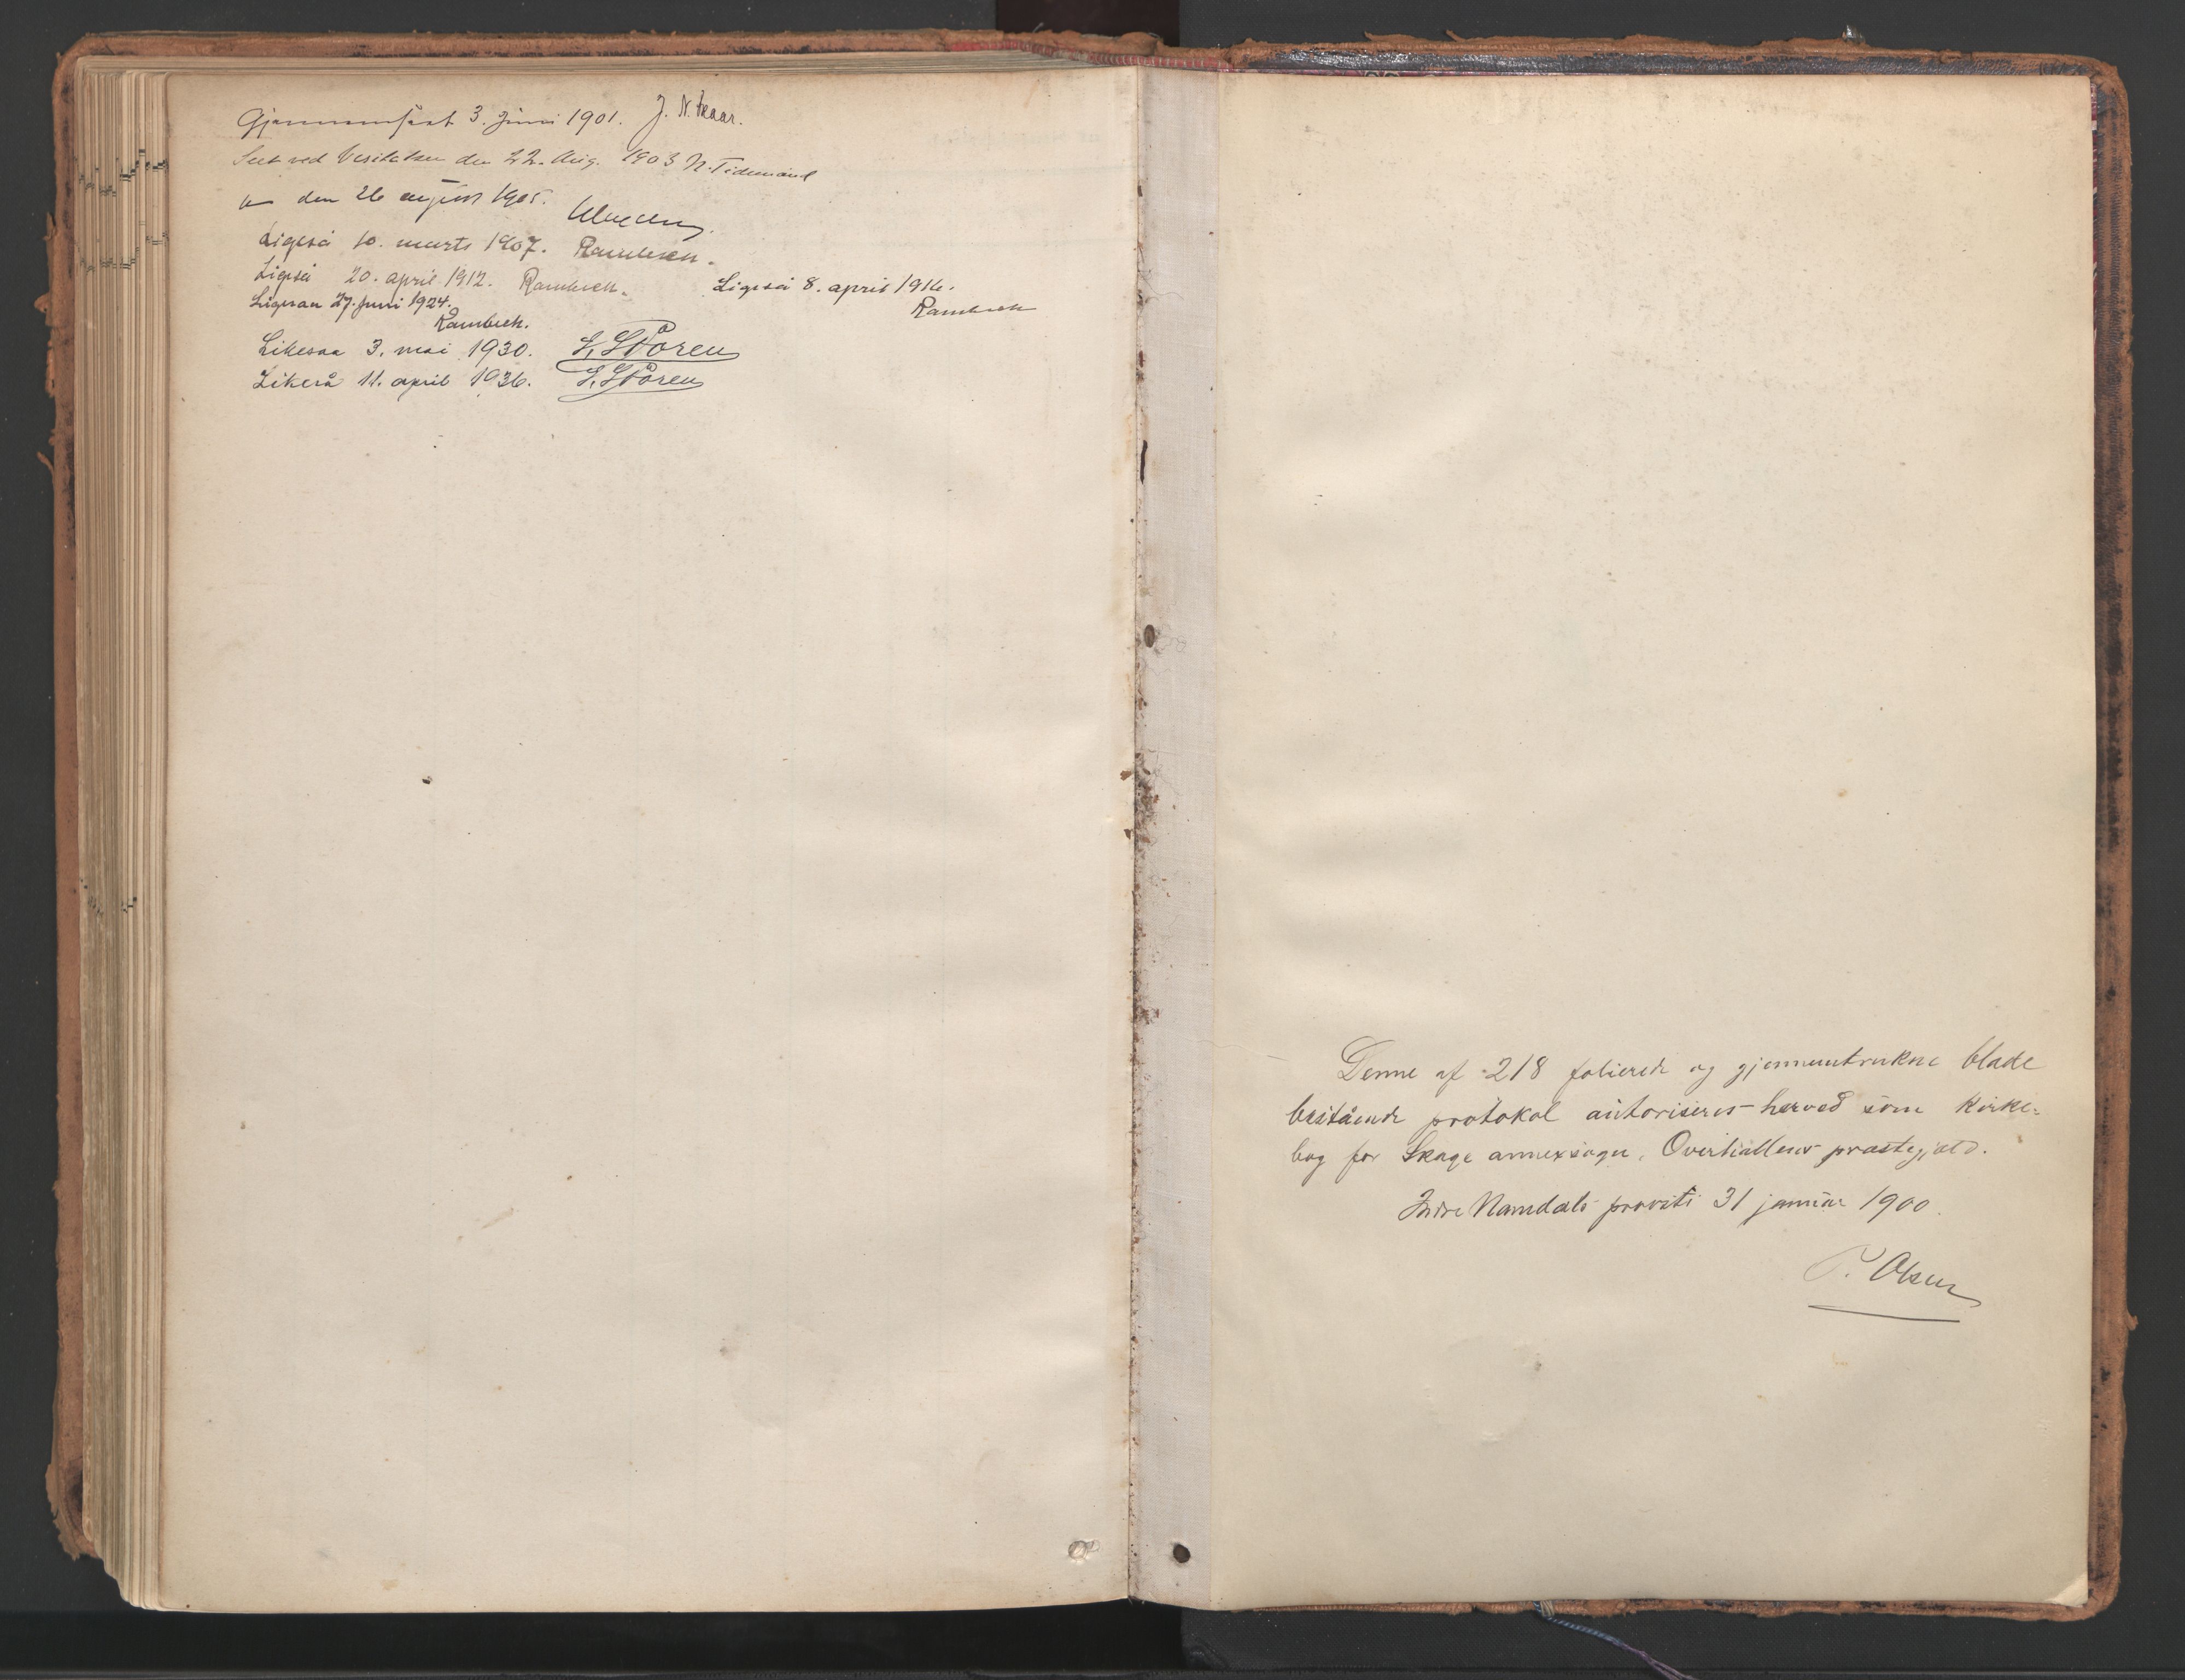 Gjennemseet 3. Juni 1901. J. N. Skaar.
Seet ved Visitatsen den 22. Aug. 1903 N. Tidemand
den 26 august 1905.
Ligeså 10. marts 1907. Rambech.
Ligeså 20. april 1912. Rambech.
Ligeså 8. april 1916.
Rambech
Ligesaa 27. juni 1924.
Rambech.
Likesaa 3. mai 1930. S. Støren
Likeså 11. april 1936. S. Støren
Denne af 218 folierede og gjennemtrukne blade
bestående protokol autoriseres herved som kirke-
bog for Skage annexsogn, Overhallens præstegjæld.
Indre Namdals provsti 31 januar 1900.
P. Olsen